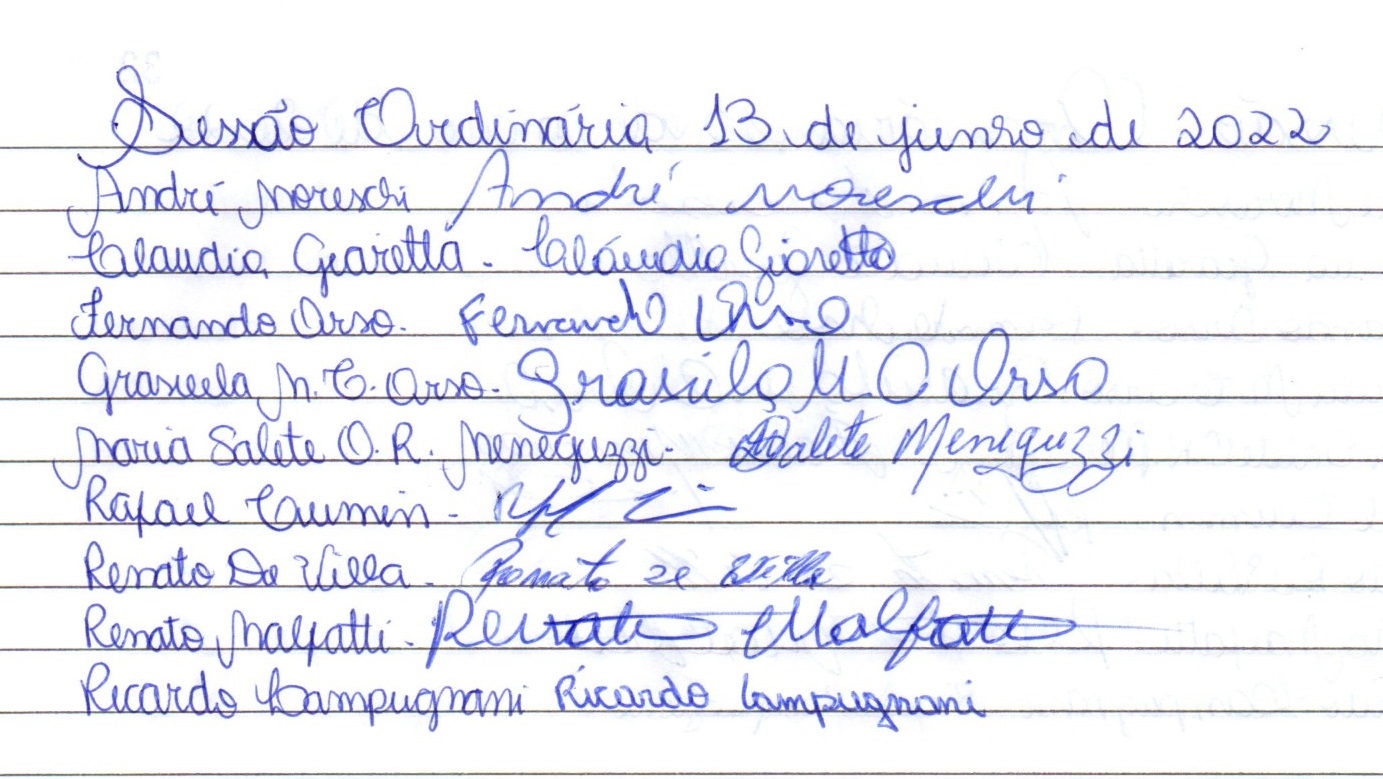 Sessão Ordinária 13 de junho de 2022
André Moreschi André Moreschi
Claudia Giaretta - Claúdia Giaretta
Fernando Orso. Fernando Orso
Grasiela M. C. Orso - Grasiela M. C Orso
Maria Salete O. R. Meneguzzi - Salete Meneguzzi
Rafael Cumin -
Renato De Villa - Renato de Villa
Renato Malfatti - Renato Malfatti
Ricardo Lampugnani Ricardo Lampugnani